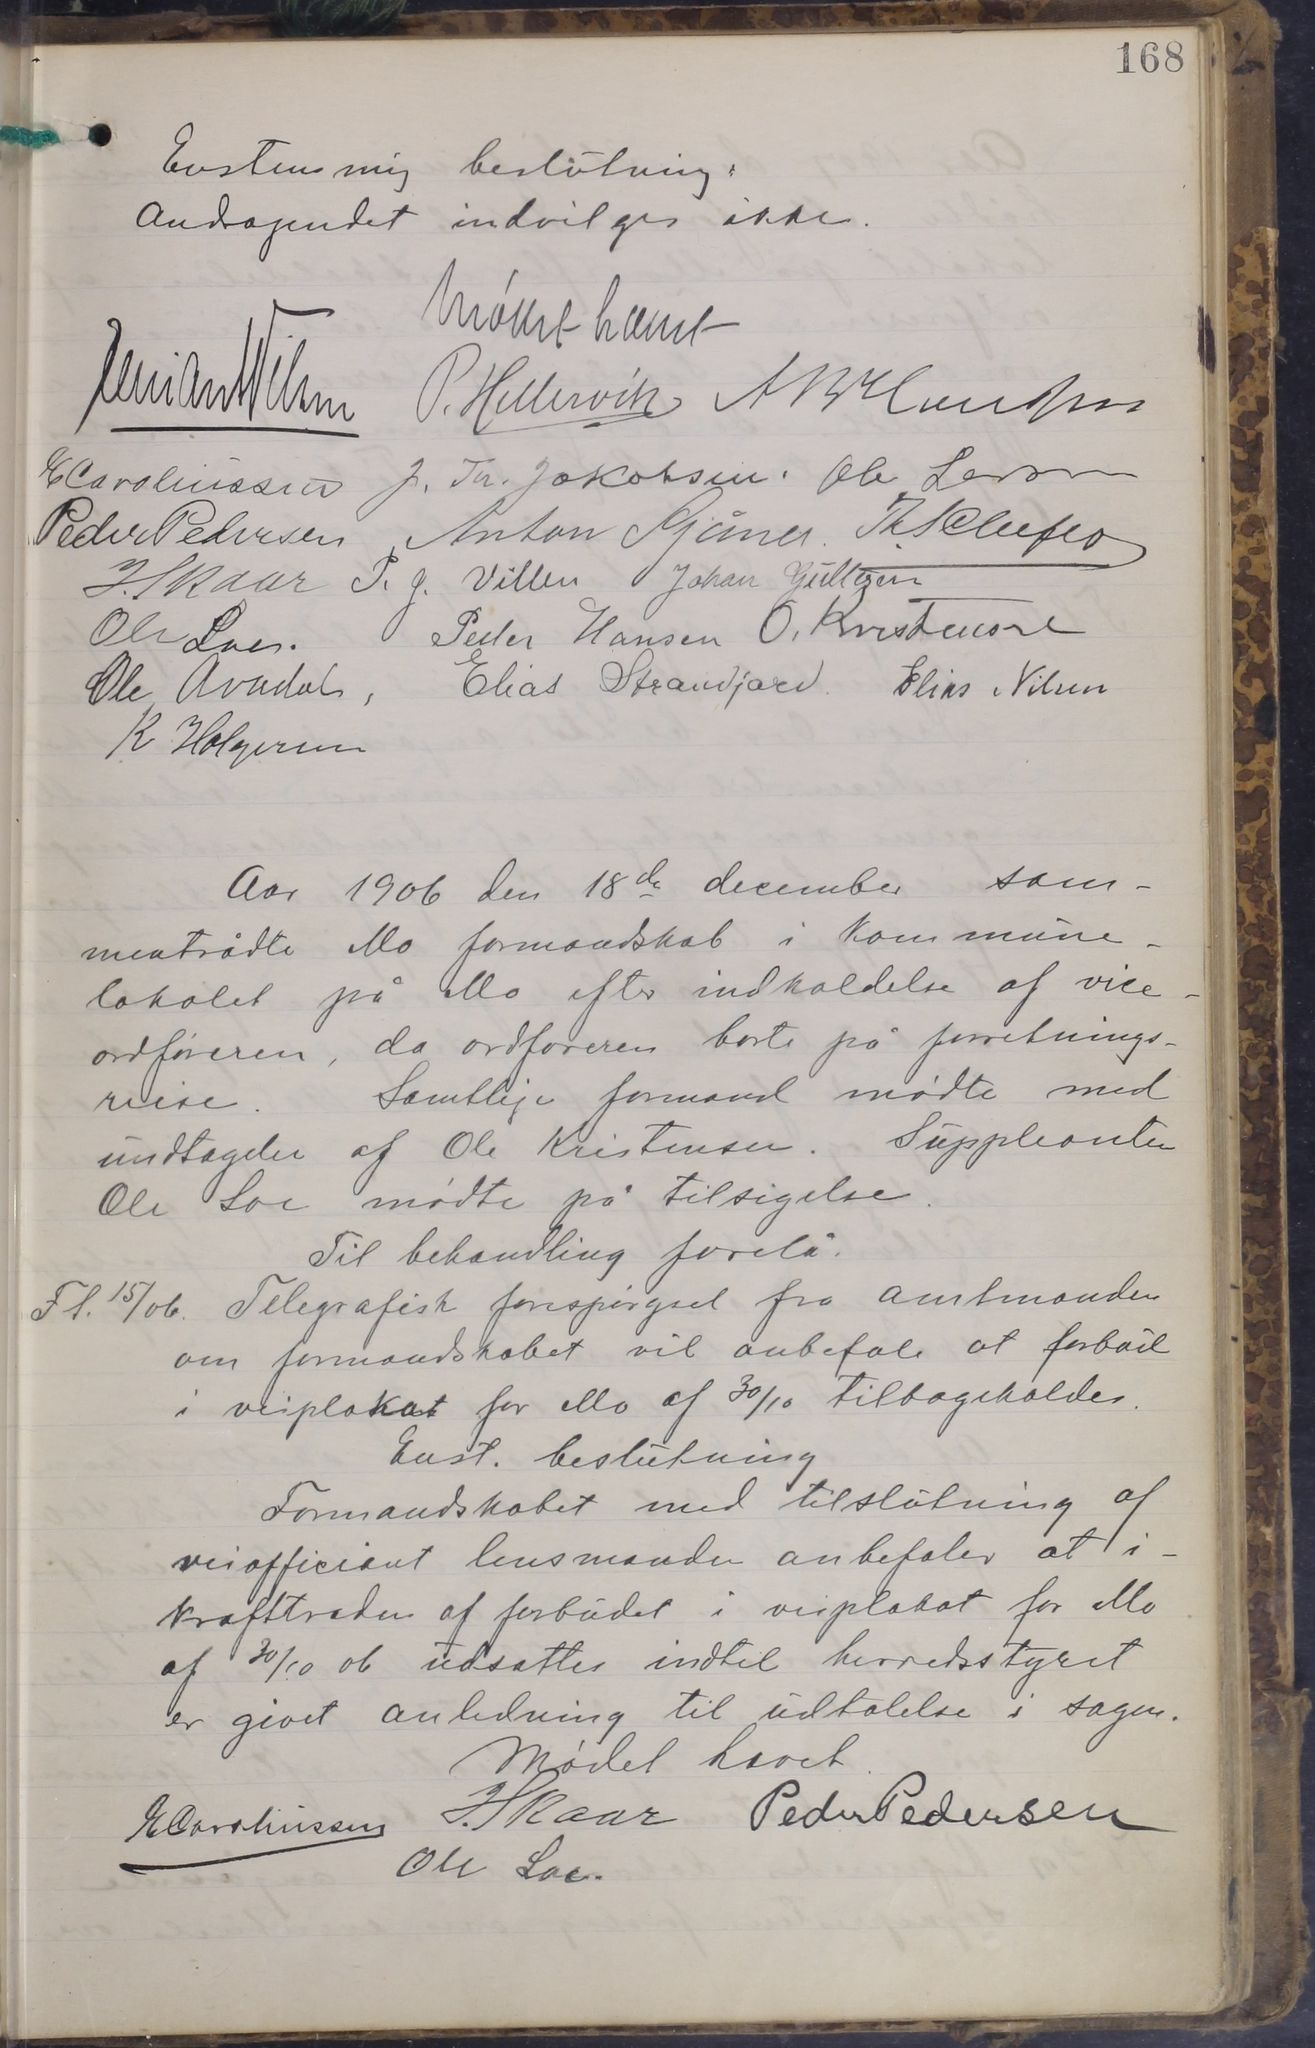 168
Enstemmig beslutning:
Andragendet indvilges ikke.
Mødet hævet
P. Hellervik
ECaroliussen J. Th. Jakobsen. Ole Larsen
Peder Pedersen Anton
J. Skaar P. J. Villen Johan Gültzen
Ole Loe. Peder Hansen O. Kristensen
Ole Elias Strandjord Elias Nilsen
K Holgersen
Aar 1906 den 18de december sam-
mentrådte Mo formandskab i kommune-
lokalet på Mo efter indkaldelse af vice-
ordføreren, da ordføreren borte på forretnings-
reise. Samtlige formænd mødte med
undtagelse af Ole Kristensen. Suppleanten
Ole Loe mødte på tilsigelse.
Til behandling forelå.
F l. 15/06. Telegrafisk forespørgsel fra amtmanden
om formandskabet vil anbefale at forbud
i veiplakat for Mo af 30/10 tilbageholdes.
Enst. beslutning
Formandskabet med tilslutning af
veiofficiant lensmanden anbefaler at i-
krafttræden af forbudet i veiplakat for Mo
af 30/10 06 udsættes indtil herredsstyret
er givet anledning til udtalelse i sagen.
Mødet hævet.
ECaroliussen J. Skaar Peder Pedersen
Ole Loe.